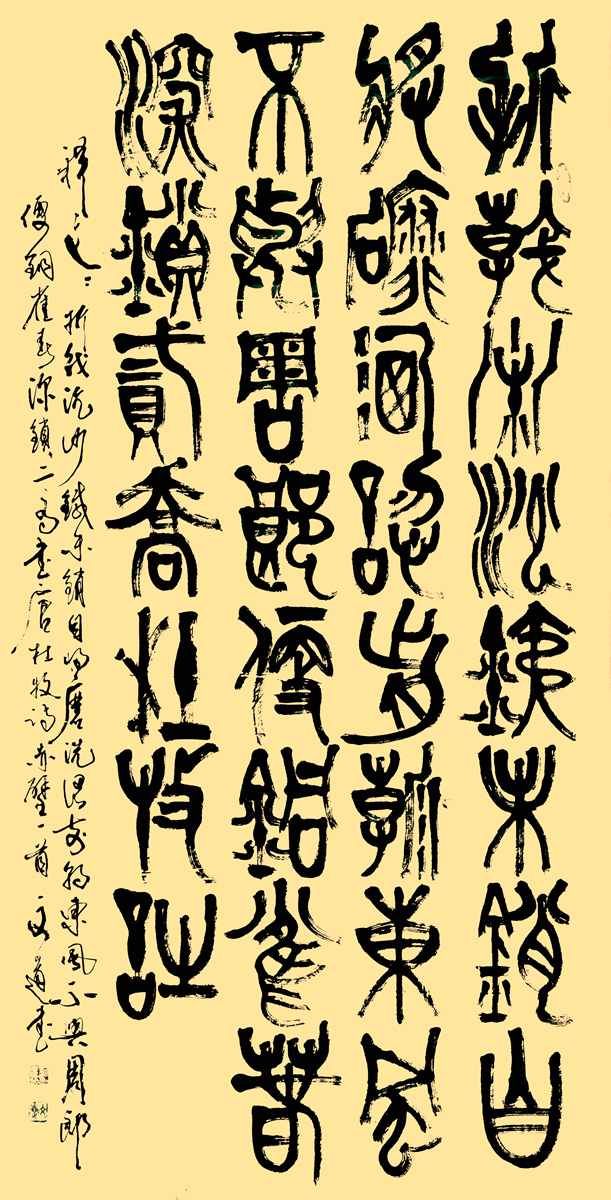 折戟沉沙鐵未銷自
將磨洗認前朝東風
不與周郎便銅雀春
深鎖貳喬杜牧詩
釋文：折戟沉沙鐵未銷自將磨洗認前朝東風不與周郎
便銅雀春深鎖二喬書唐杜牧詩赤壁一首文道書